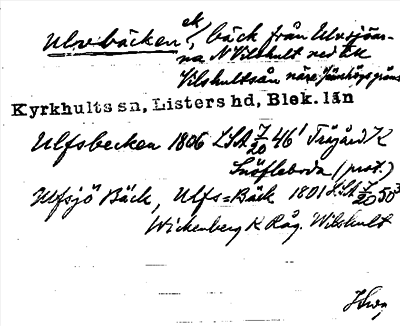 Ulvebäcken ek/, bäck från Ulvsjöar-
na N Vilshult ned till
Vilshultsån nära Jämshögsgräns
Kyrkhults sn, Listers hd, Blek. län
Ulfsbecken 1806 LSA 7/20 46' Trägård K
Snöfleboda (prot.)
Ulfsjö Bäck, Ulfs=Bäck 1801 LSA 7/20 50³
Wickenberg K Råg. Wilshult